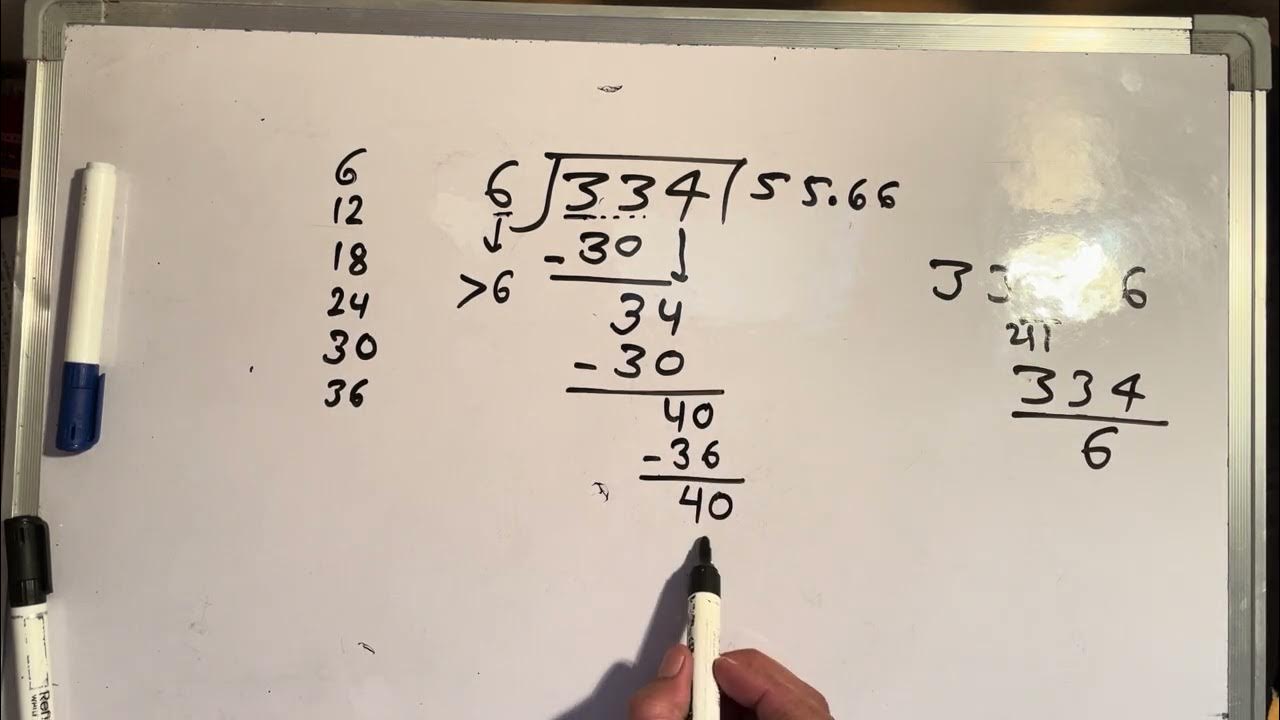 6
12
18
24
30
36
6 ) 334 ( 55.66
>6
- 30
34
- 30
40
- 36
40
3 3 6
41
334
6